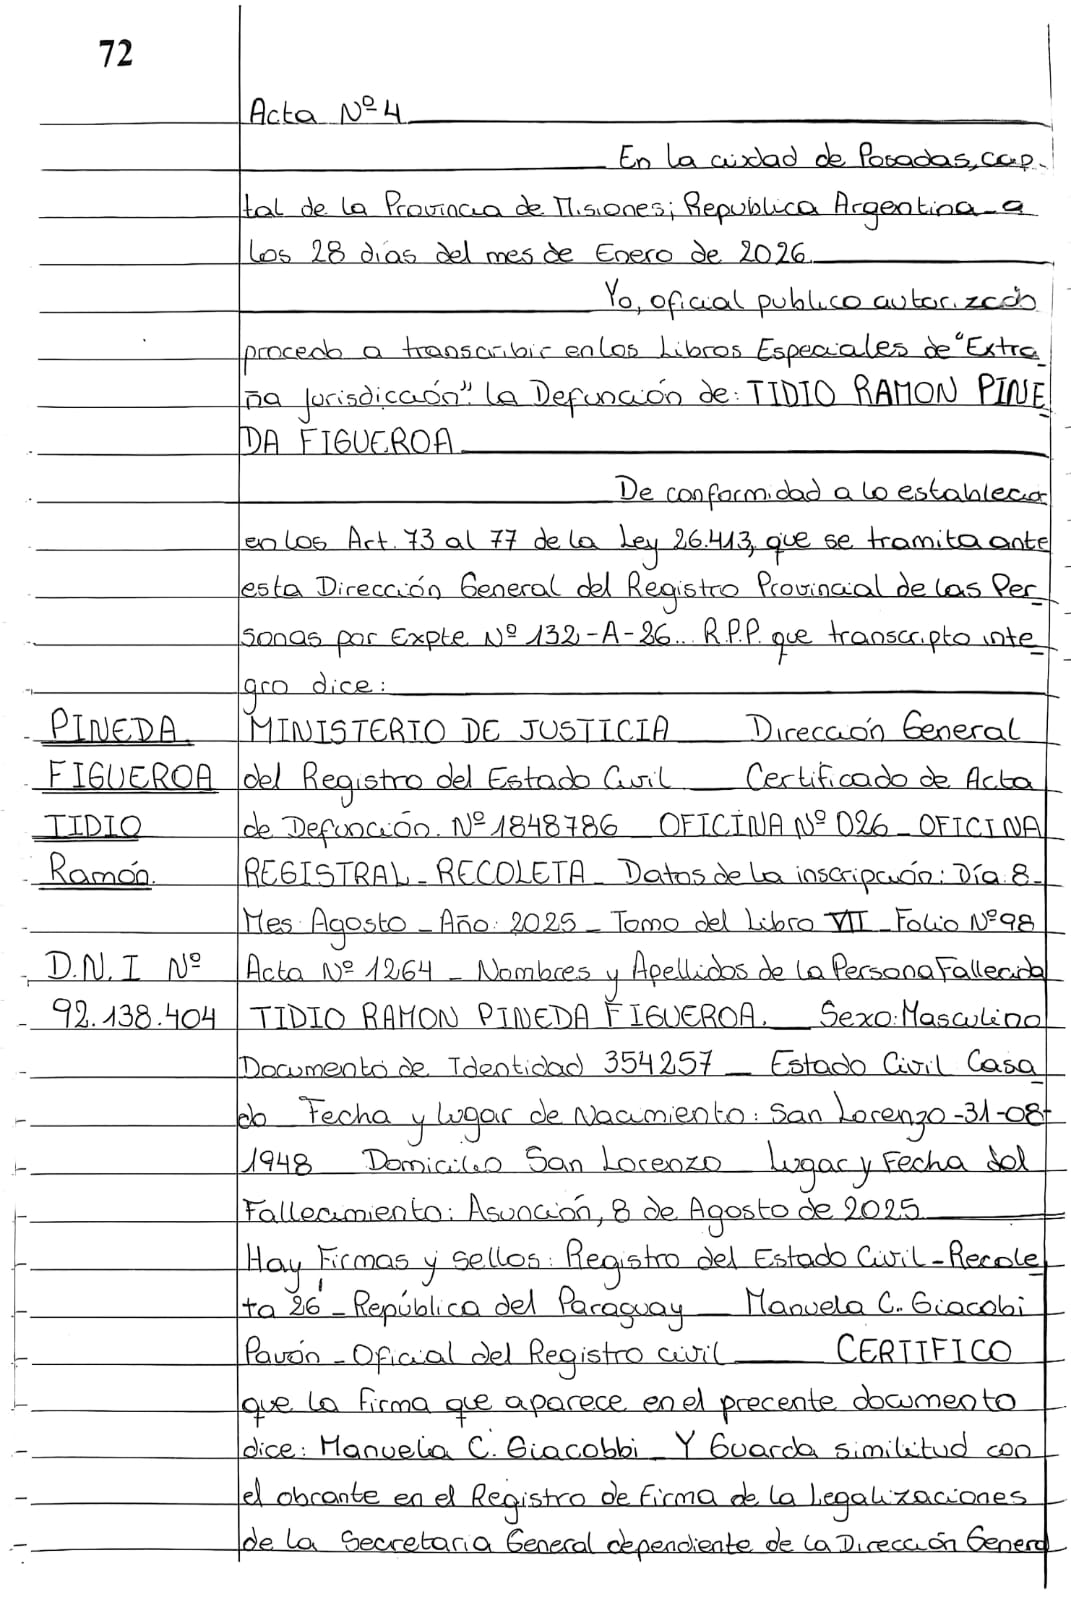 72
Acta Nº 4
En la ciudad de Posadas, cap.
tal de la Provincia de Misiones; Republica Argentina a
los 28 días del mes de Enero de 2026.
Yo, oficial publico autorizado
procedo a transcribir en los Libros Especiales de "Extra
ña Jurisdicción" la Defunción de: TIDIO RAMON PINE
DA FIGUEROA
De conformidad a lo establecido
en los Art. 73 al 77 de la Ley 26.413, que se tramita ante
esta Dirección General del Registro Provincial de las Per
sonas por Expte Nº 132-A-26.. R.P.P. que transcripto inte
gro dice:
PINEDA
FIGUEROA
TIDIO
Ramón.
D.N.I Nº
92.138.404
MINISTERIO DE JUSTICIA Dirección General
del Registro del Estado Civil Certificado de Acta
de Defunción. Nº 1848786 OFICINA Nº 026 - OFICINA
REGISTRAL - RECOLETA - Datos de la inscripción: Día 8-
Mes: Agosto - Año: 2025 - Tomo del Libro VII - Folio Nº 98
Acta Nº 1264 - Nombres y Apellidos de la Persona Fallecida
TIDIO RAMON PINEDA FIGUEROA. Sexo: Masculino
Documento de Identidad 354257 - Estado Civil Casa
do Fecha y lugar de Nacimiento: San Lorenzo - 31-08-
1948 Domicilio San Lorenzo Lugar y Fecha del
Fallecimiento: Asunción, 8 de Agosto de 2025
Hay Firmas y sellos: Registro del Estado Civil - Recole
ta 26 - República del Paraguay - Manuela C. Giacobi
Pavón - Oficial del Registro civil CERTIFICO
que la firma que aparece en el precente documento
dice: Manuela C. Giacobbi Y Guarda similitud con
el obrante en el Registro de Firma de la Legalizaciones
de la Secretaria General dependiente de la Dirección General